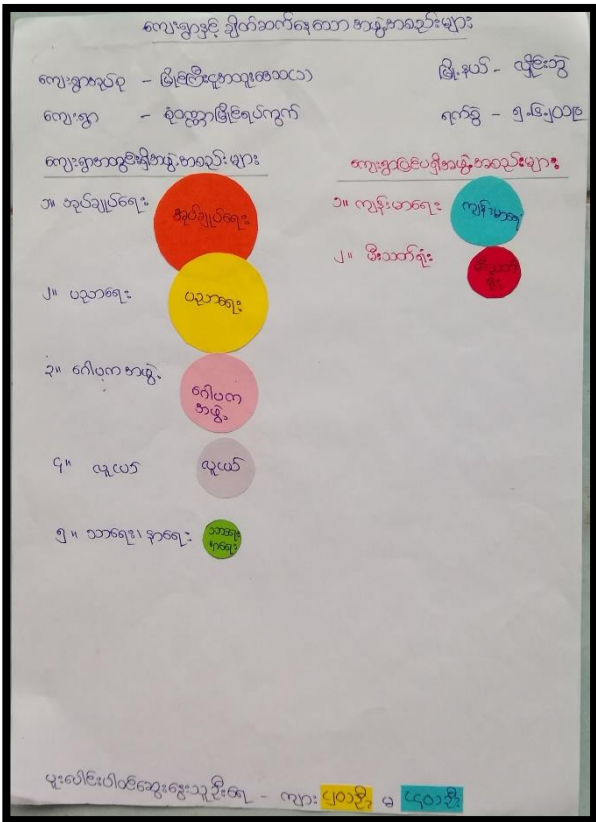 ကျေးရွာနှင့် ချိတ်ဆက်နေသော အဖွဲ့အစည်းများ
ကျေးရွာအုပ်စု - မြိုင်ကြီးငူအထူးဒေသ(၁)
မြို့နယ် - လှိုင်းဘွဲ
ကျေးရွာ - စုံဝဏ္ဏာမြိုင်ရပ်ကွက်
ရက်စွဲ - ၅.၆.၂၀၁၉
ကျေးရွာအတွင်းရှိအဖွဲ့အစည်းများ
၁။ အုပ်ချုပ်ရေး
အုပ်ချုပ်ရေး
၂။ ပညာရေး
ပညာရေး
၃။ ဂေါပကအဖွဲ့
ဂေါပက
အဖွဲ့
၄။ လူငယ်
လူငယ်
၅။ သာရေး၊ နာရေး
သာရေး
နာရေး
ကျေးရွာပြင်ပရှိအဖွဲ့အစည်းများ
၁။ ကျန်းမာရေး
ကျန်းမာရေး
၂။ မီးသတ်ရုံး
မီးသတ်
ရုံး
ပူးပေါင်းပါဝင်ဆွေးနွေးသူဦးရေ - ကျား မ